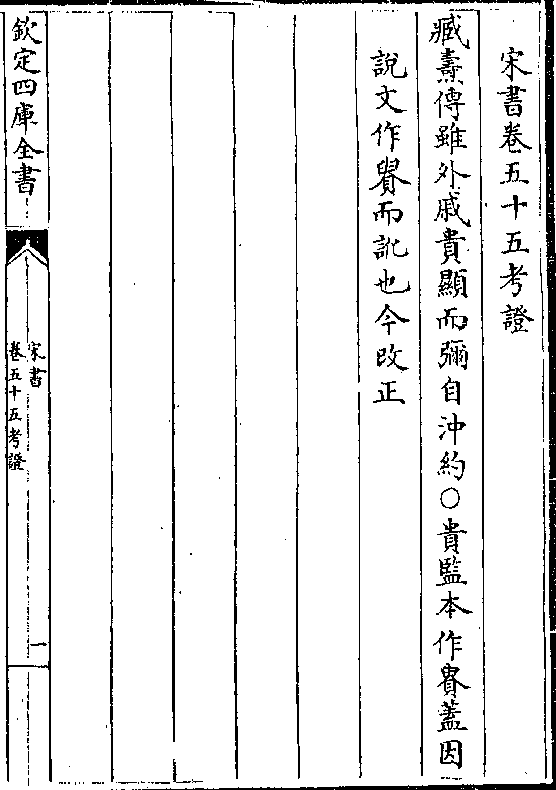 宋書卷五十五考證
臧燾傳雖外戚貴顯而彌自沖約○貴監本作賮蓋因
說文作䝿而訛也今改正
欽定四庫全書
宋書
卷五十五考證
一